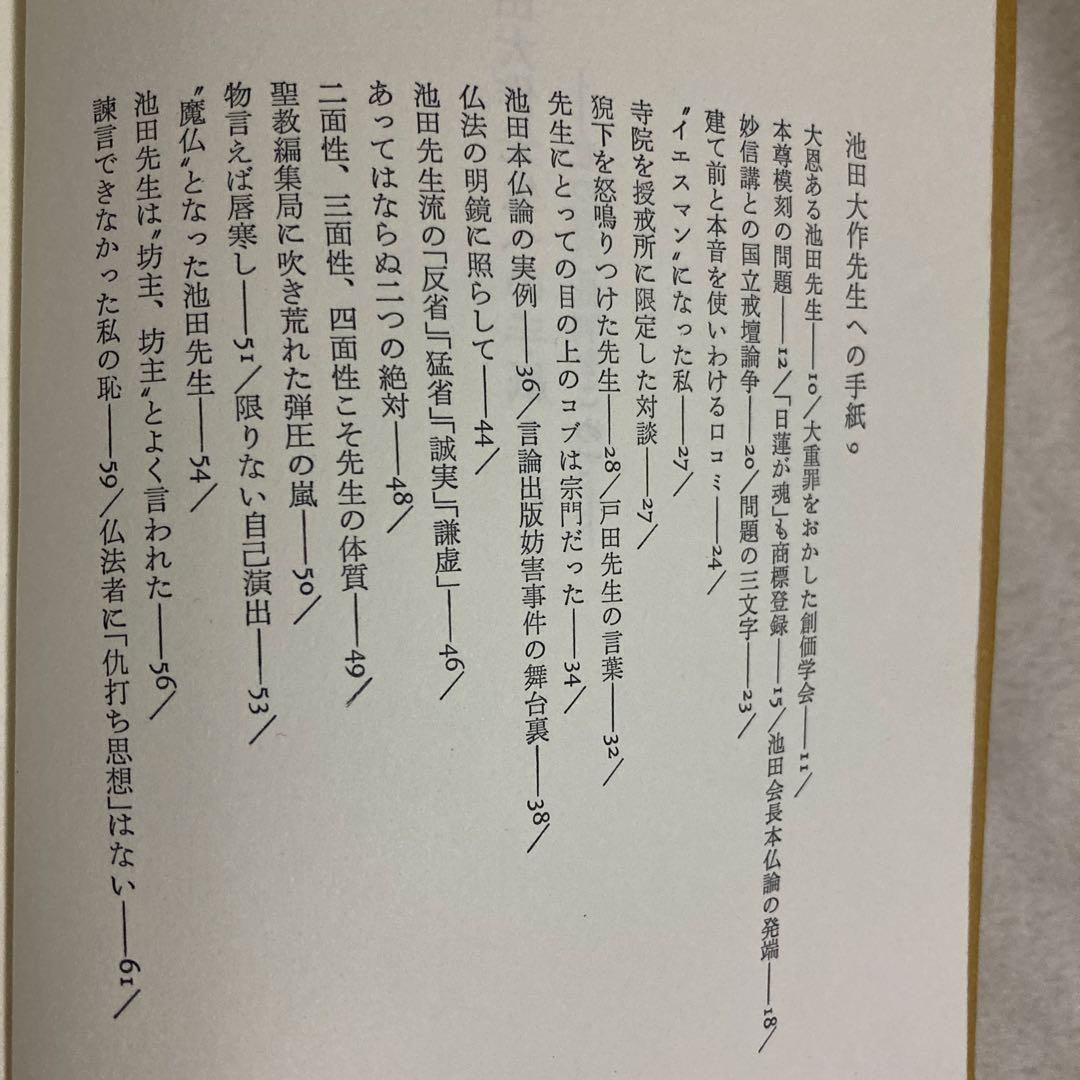 池田大作先生への手紙 9
大恩ある池田先生――10／大重罪をおかした創価学会――11／
本尊模刻の問題――12／「日蓮が魂」も商標登録――15／池田会長本仏論の発端――18／
妙信講との国立戒壇論争――20／問題の三文字――23／
建て前と本音を使いわける口コミ――24／
〝イエスマン〟になった私――27／
寺院を授戒所に限定した対談――27／
猊下を怒鳴りつけた先生――28／戸田先生の言葉――32／
先生にとっての目の上のコブは宗門だった――34／
池田本仏論の実例――36／言論出版妨害事件の舞台裏――38／
仏法の明鏡に照らして――44／
池田先生流の「反省」「猛省」「誠実」「謙虚」――46／
あってはならぬ二つの絶対――48／
二面性、三面性、四面性こそ先生の体質――49／
聖教編集局に吹き荒れた弾圧の嵐――50／
物言えば唇寒し――51／限りない自己演出――53／
〝魔仏〟となった池田先生――54／
池田先生は〝坊主、坊主〟とよく言われた――56／
諫言できなかった私の恥――59／仏法者に「仇打ち思想」はない――61／